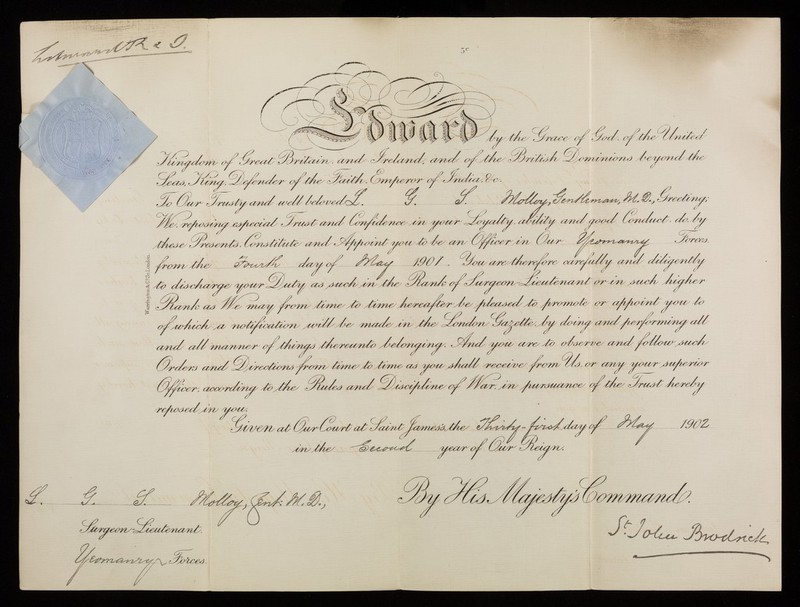 Edward R & I.
Edward by the Grace of God, of the United
Kingdom of Great Britain and Ireland, and of the British Dominions beyond the
Seas, King, Defender of the Faith, Emperor of India, &c.
To Our Trusty and well beloved L. G. S. Molloy, Gentleman, M.D., Greeting:
We, reposing especial Trust and Confidence in your Loyalty, ability and good Conduct, do, by
these Presents, Constitute and Appoint you to be an Officer in Our Yeomanry Forces
from the Fourth day of May 1901. You are therefore carefully and diligently
to discharge your Duty as such in the Rank of Surgeon-Lieutenant or in such higher
Rank as We may from time to time hereafter be pleased to promote or appoint you to
of which a notification will be made in the London Gazette, by doing and performing all
and all manner of things thereunto belonging. And you are to observe and follow such
Orders and Directions from time to time as you shall receive from Us, or any your superior
Officer, according to the Rules and Discipline of War, in pursuance of the Trust hereby
reposed in you.
Given at Our Court at Saint James's, the Thirty-first day of May 1902
in the Second year of Our Reign.
By His Majesty's Command.
L. G. S. Molloy, Gent. M.D.,
Surgeon-Lieutenant
Yeomanry Forces
St. John Brodrick